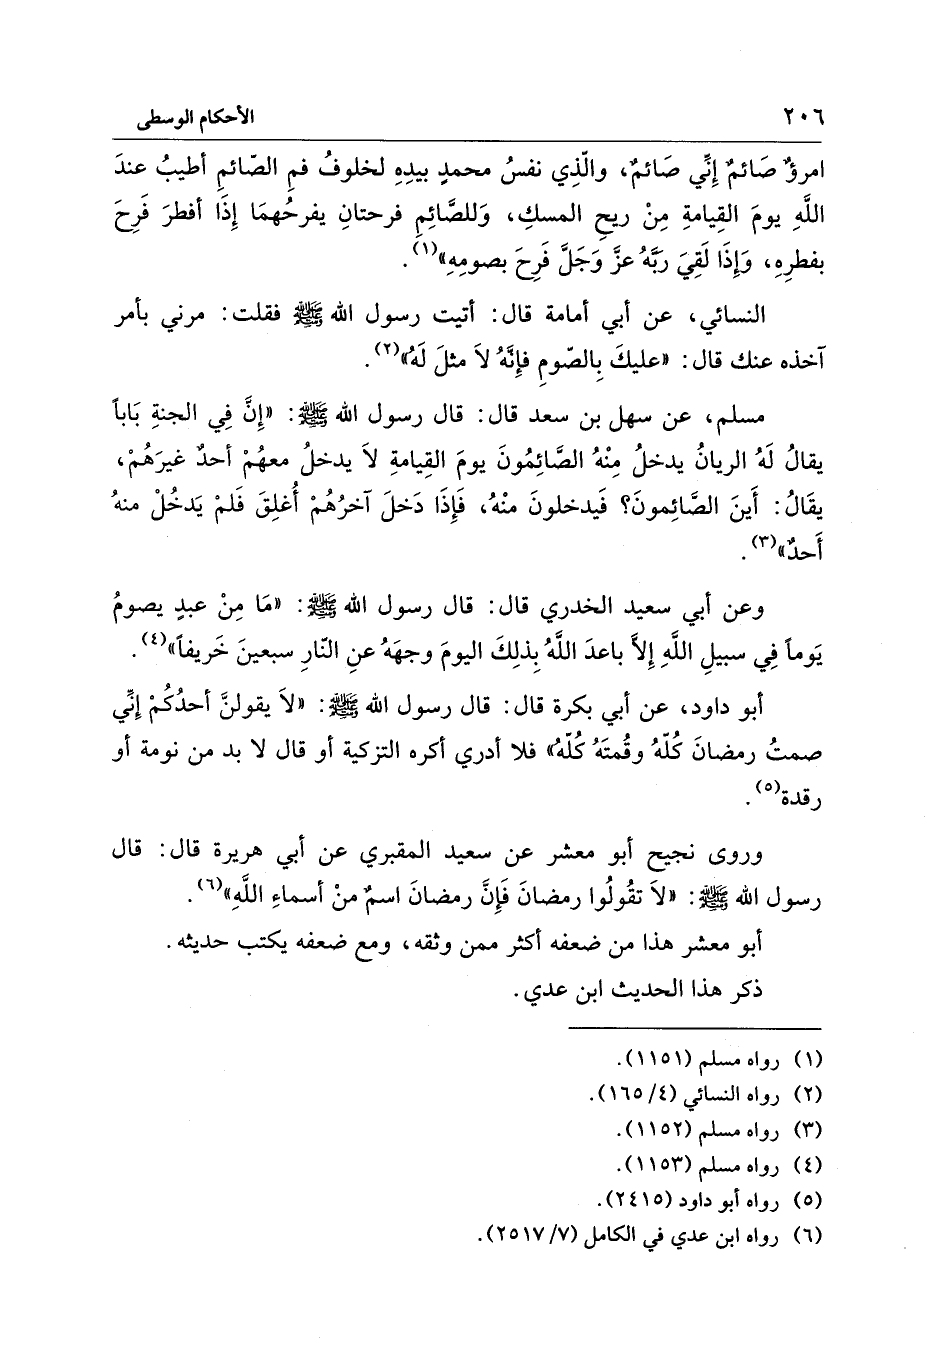 ٢٠٦ الأحكام الوسطى
امرؤٌ صَائمٌ إنِّي صَائمٌ، والّذِي نفسُ محمدٍ بيدِهِ لخلوفُ فمِ الصّائمِ أطيبُ عندَ
اللَّهِ يومَ القِيامةِ مِنْ ريحِ المسكِ، وَللصَّائِمِ فرحتانِ يفرحُهمَا إذَا أفطرَ فَرِحَ
بفطرِهِ، وَإذَا لَقِيَ رَبَّهُ عزَّ وَجَلَّ فَرِحَ بصومِهِ»(١).
النسائي، عن أبي أمامة قال: أتيت رسول الله ﷺ فقلت: مرني بأمر
آخذه عنك قال: «عليكَ بِالصّومِ فإنَّهُ لاَ مثلَ لَهُ»(٢).
مسلم، عن سهل بن سعد قال: قال رسول الله ﷺ: «إنَّ فِي الجنةِ بَاباً
يقالُ لَهُ الريانُ يدخلُ مِنْهُ الصَّائِمُونَ يومَ القِيامةِ لاَ يدخلُ معهُمْ أحدٌ غيرَهُمْ،
يقَالُ: أَينَ الصَّائِمونَ؟ فَيدخلونَ منْهُ، فَإذَا دَخلَ آخرُهُمْ أُغلِقَ فَلمْ يَدخُلْ منهُ
أَحدٌ»(٣).
وعن أبي سعيد الخدري قال: قال رسول الله ﷺ: «مَا مِنْ عبدٍ يصومُ
يَوماً فِي سبيلِ اللَّهِ إلاَّ باعدَ اللَّهُ بذلِكَ اليومَ وجهَهُ عنِ النّارِ سبعينَ خَريفاً»(٤).
أبو داود، عن أبي بكرة قال: قال رسول الله ﷺ: «لاَ يقولنَّ أحدُكُمْ إنِّي
صمتُ رمضانَ كُلّهُ وقُمتَهُ كُلّهُ» فلا أدري أكره التزكية أو قال لا بد من نومة أو
رقدة(٥).
وروى نجيح أبو معشر عن سعيد المقبري عن أبي هريرة قال: قال
رسول الله ﷺ: «لاَ تقُولُوا رمضانَ فَإنَّ رمضانَ اسمٌ منْ أسماءِ اللَّهِ»(٦).
أبو معشر هذا من ضعفه أكثر ممن وثقه، ومع ضعفه يكتب حديثه.
ذكر هذا الحديث ابن عدي.
(١) رواه مسلم (١١٥١).
(٢) رواه النسائي (٤/ ١٦٥).
(٣) رواه مسلم (١١٥٢).
(٤) رواه مسلم (١١٥٣).
(٥) رواه أبو داود (٢٤١٥).
(٦) رواه ابن عدي في الكامل (٧/ ٢٥١٧).